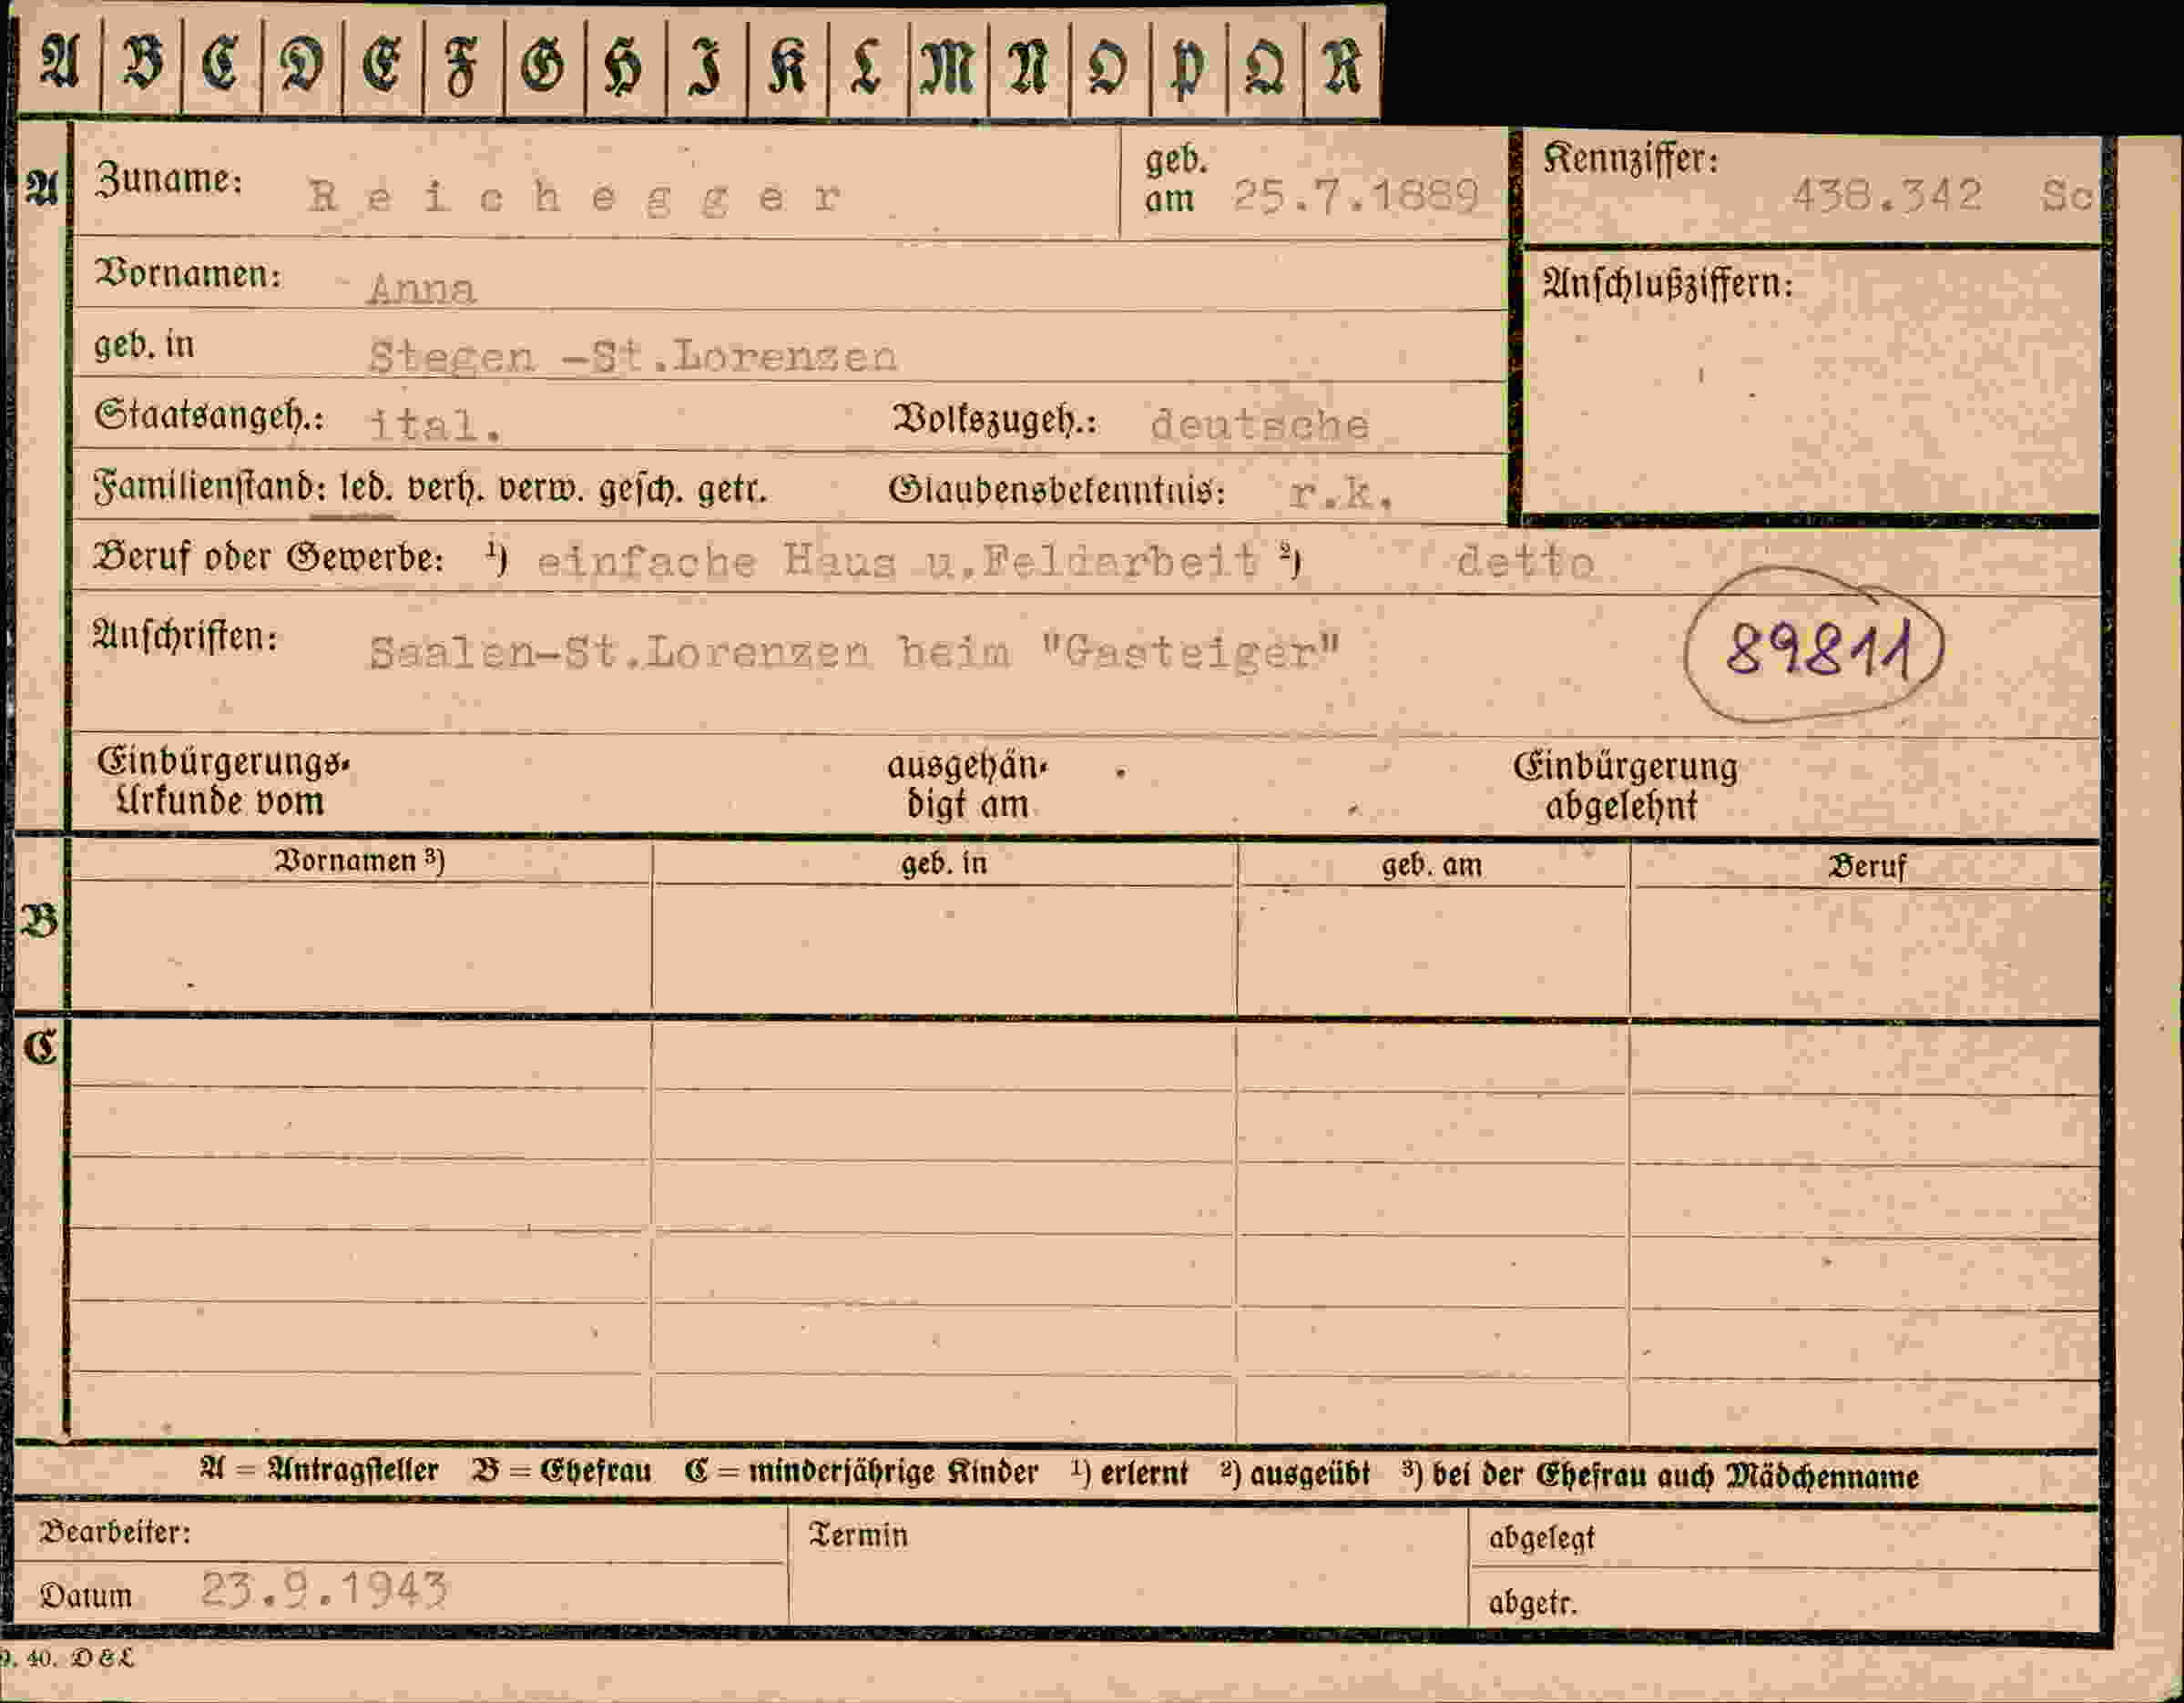 A B C D E F G H I K L M N O P Q R
A Zuname: Reichegger geb. am 25.7.1889 Kennziffer: 438.342 Sc
Vornamen: Anna Anschlußziffern:
geb. in Stegen -St.Lorenzen
Staatsangeh.: ital. Volkszugeh.: deutsche
Familienstand: led. verh. verw. gesch. getr. Glaubensbekenntnis: r.k.
Beruf oder Gewerbe: ¹) einfache Haus u.Feldarbeit ²) detto
Anschriften: Saalen-St.Lorenzen beim "Gasteiger" 89811
Einbürgerungs- ausgehän- Einbürgerung
Urkunde vom digt am abgelehnt
Vornamen ³) geb. in geb. am Beruf
B
C
A = Antragsteller B = Ehefrau C = minderjährige Kinder ¹) erlernt ²) ausgeübt ³) bei der Ehefrau auch Mädchenname
Bearbeiter: Termin abgelegt
Datum 23.9.1943 abgetr.
9. 40. D&L